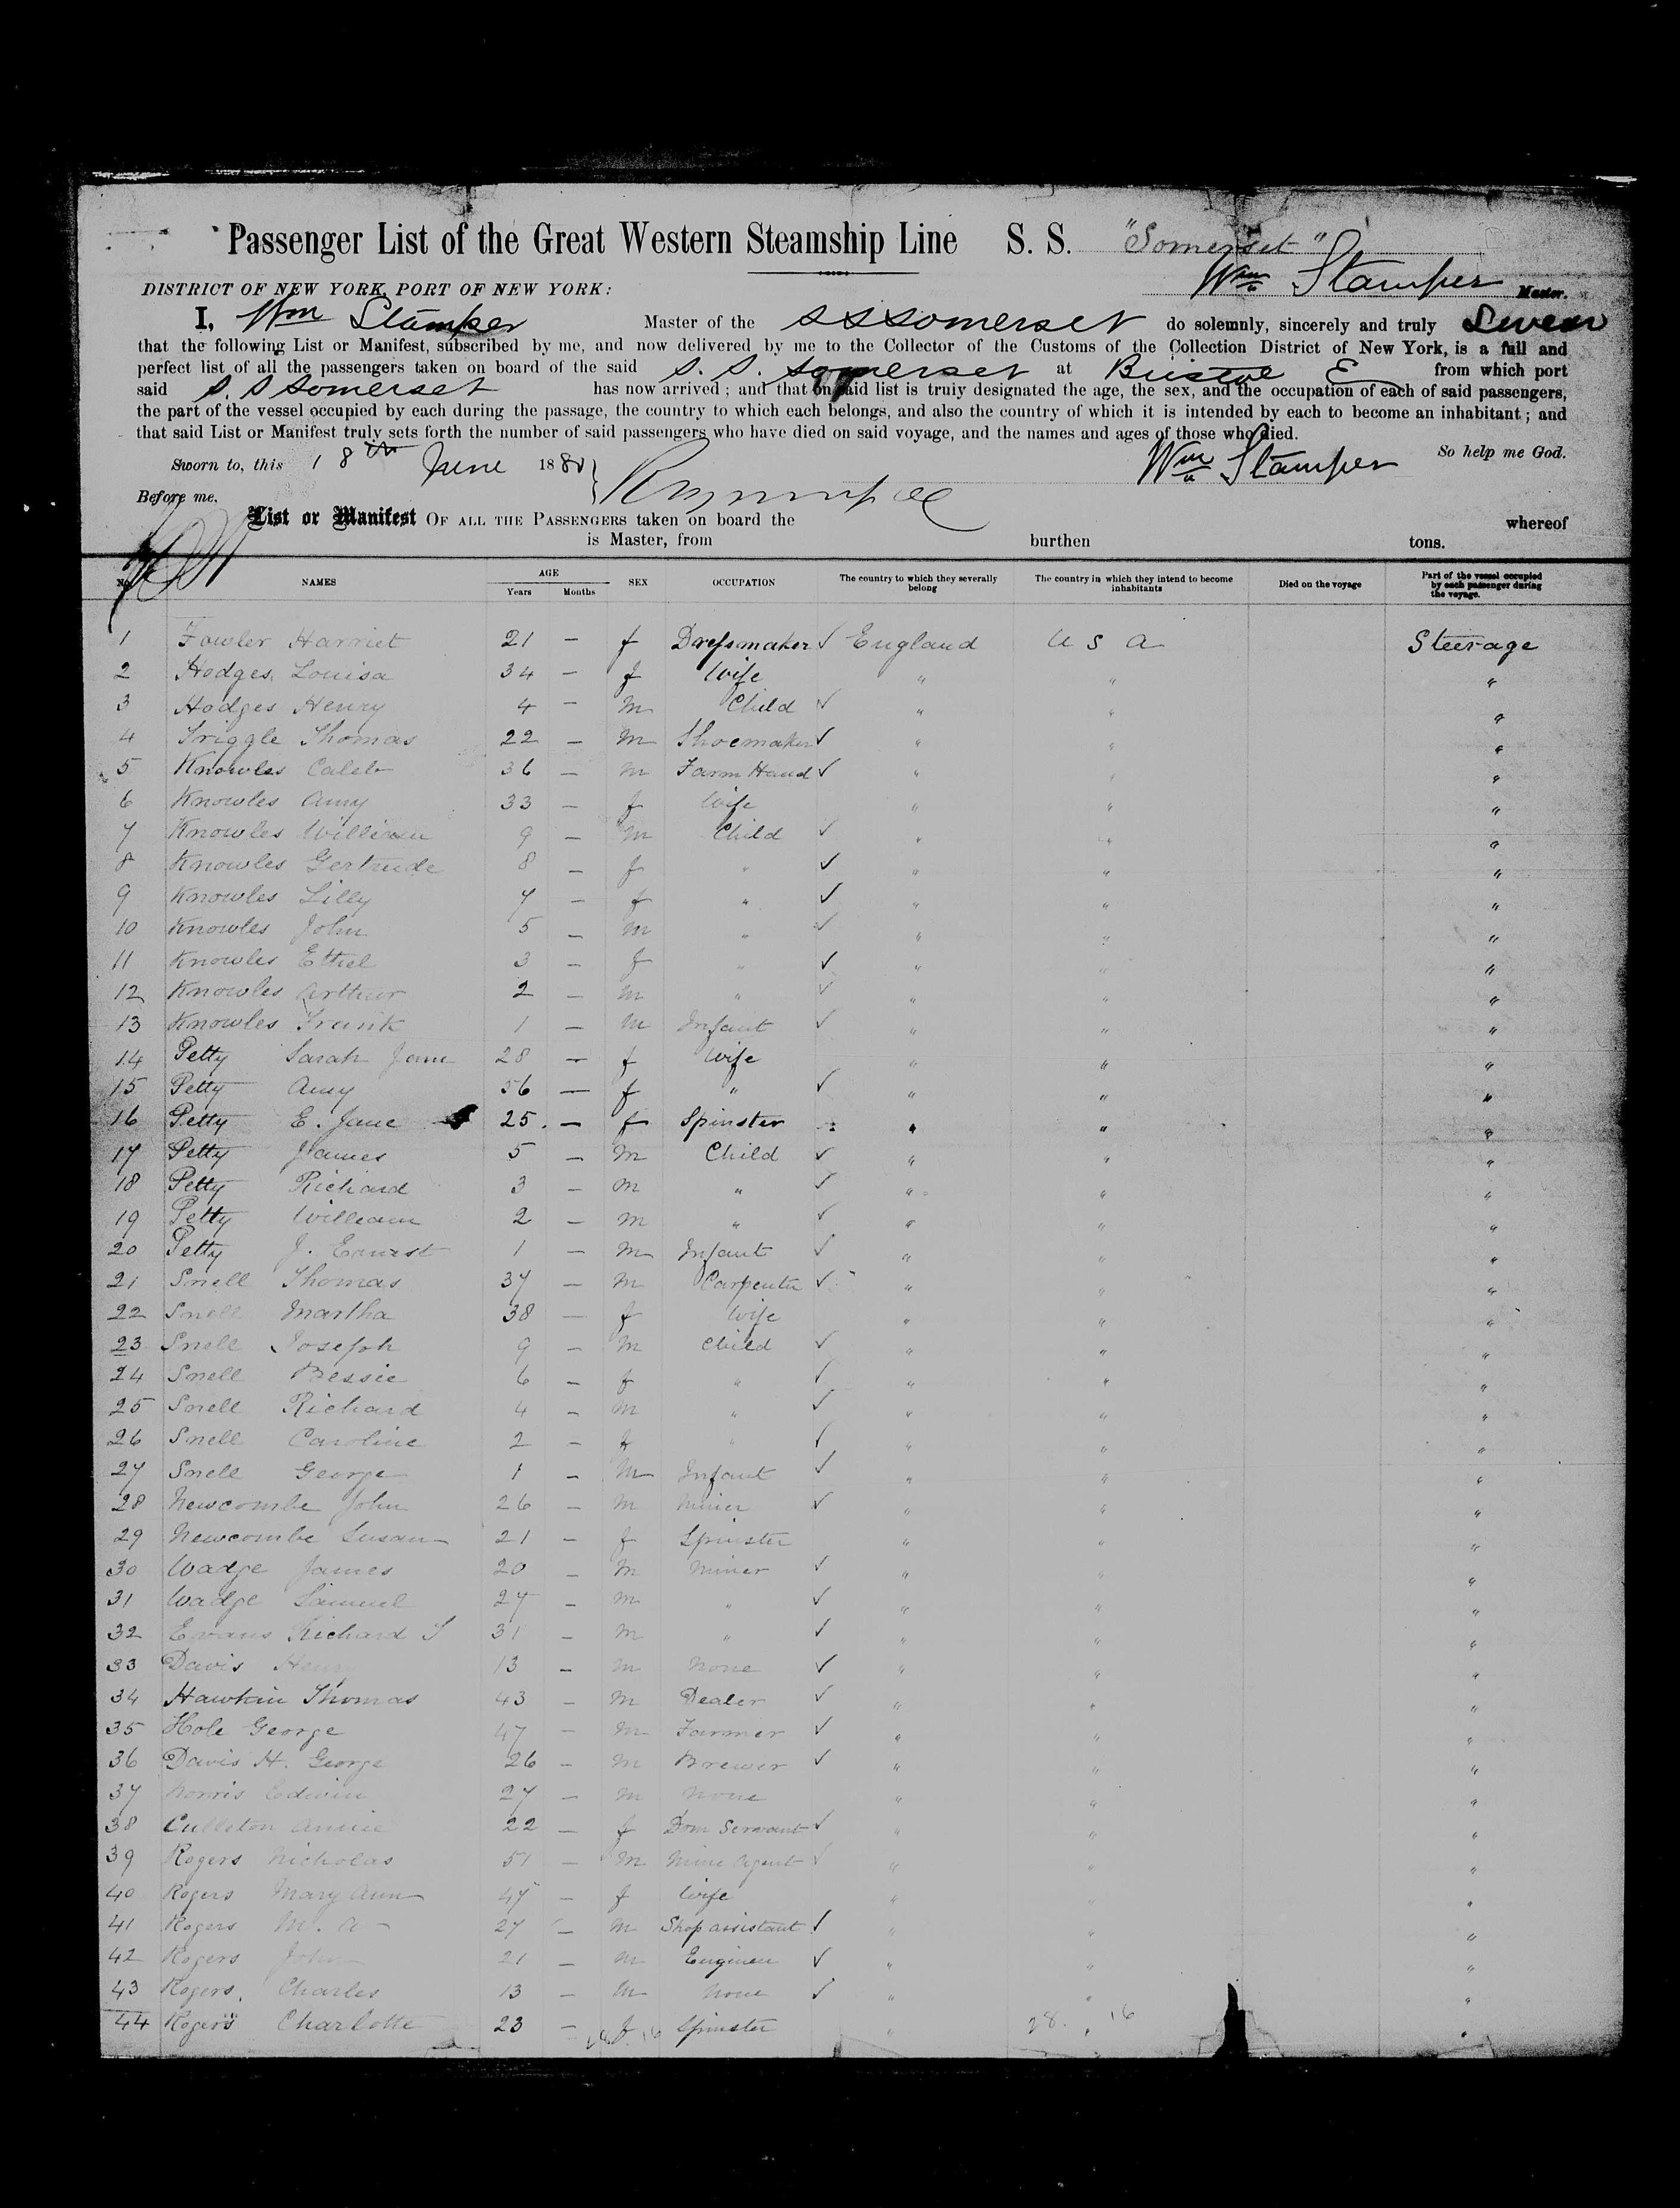 Passenger List of the Great Western Steamship Line S. S. "Somerset"
Wm Stamper Master.
DISTRICT OF NEW YORK, PORT OF NEW YORK:
I, Wm Stamper Master of the SS Somerset do solemnly, sincerely and truly Swear
that the following List or Manifest, subscribed by me, and now delivered by me to the Collector of the Customs of the Collection District of New York, is a full and
perfect list of all the passengers taken on board of the said S. S. Somerset at Bristol E from which port
said S. S Somerset has now arrived; and that on said list is truly designated the age, the sex, and the occupation of each of said passengers,
the part of the vessel occupied by each during the passage, the country to which each belongs, and also the country of which it is intended by each to become an inhabitant; and
that said List or Manifest truly sets forth the number of said passengers who have died on said voyage, and the names and ages of those who died.
So help me God.
Sworn to, this 18th June 1880 Wm Stamper
Before me,
List or Manifest OF ALL THE PASSENGERS taken on board the whereof
is Master, from burthen tons.
No. NAMES AGE Years Months SEX OCCUPATION The country to which they severally belong The country in which they intend to become inhabitants Died on the voyage Part of the vessel occupied by each passenger during the voyage.
1 Fowler Harriet 21 — f Dressmaker ✓ England U S A Steerage
2 Hodges Louisa 34 — f Wife " " "
3 Hodges Henry 4 — M Child ✓ " " "
4 Triggle Thomas 22 — M Shoemaker ✓ " " "
5 Knowles Caleb 36 — M Farm Hand ✓ " " "
6 Knowles Amy 33 — f Wife " " "
7 Knowles William 9 — M Child ✓ " " "
8 Knowles Gertrude 8 — f " ✓ " " "
9 Knowles Lilly 7 — f " ✓ " " "
10 Knowles John 5 — M " ✓ " " "
11 Knowles Ethel 3 — f " ✓ " " "
12 Knowles Arthur 2 — M " ✓ " " "
13 Knowles Frank 1 — M Infant ✓ " " "
14 Petty Sarah Jane 28 — f Wife " " "
15 Petty Amy 56 — f " ✓ " " "
16 Petty E. Jane 25 — f Spinster " " "
17 Petty James 5 — M Child ✓ " " "
18 Petty Richard 3 — M " ✓ " " "
19 Petty William 2 — M " ✓ " " "
20 Petty J. Ernest 1 — M Infant ✓ " " "
21 Snell Thomas 37 — M Carpenter ✓ " " "
22 Snell Martha 38 — f Wife " " "
23 Snell Joseph 9 — M Child ✓ " " "
24 Snell Bessie 6 — f " ✓ " " "
25 Snell Richard 4 — M " ✓ " " "
26 Snell Caroline 2 — f " ✓ " " "
27 Snell George 1 — M Infant ✓ " " "
28 Newcombe John 26 — M Miner ✓ " " "
29 Newcombe Susan 21 — f Spinster " " "
30 Wadge James 20 — M Miner ✓ " " "
31 Wadge Samuel 27 — M " ✓ " " "
32 Evans Richard S 31 — M " ✓ " " "
33 Davis Henry 13 — M None ✓ " " "
34 Hawkin Thomas 43 — M Dealer ✓ " " "
35 Hole George 47 — M Farmer ✓ " " "
36 Davis H. George 26 — M Brewer ✓ " " "
37 Norris Edwin 27 — M None " " "
38 Culleton Annie 22 — f Dom Servant ✓ " " "
39 Rogers Nicholas 51 — M Mine Agent ✓ " " "
40 Rogers Mary Ann 47 — f Wife " " "
41 Rogers M. A 27 — M Shop assistant ✓ " " "
42 Rogers John 21 — M Engineer ✓ " " "
43 Rogers, Charles 13 — M None ✓ " " "
44 Rogers Charlotte 23 — f Spinster " " "
28. 16